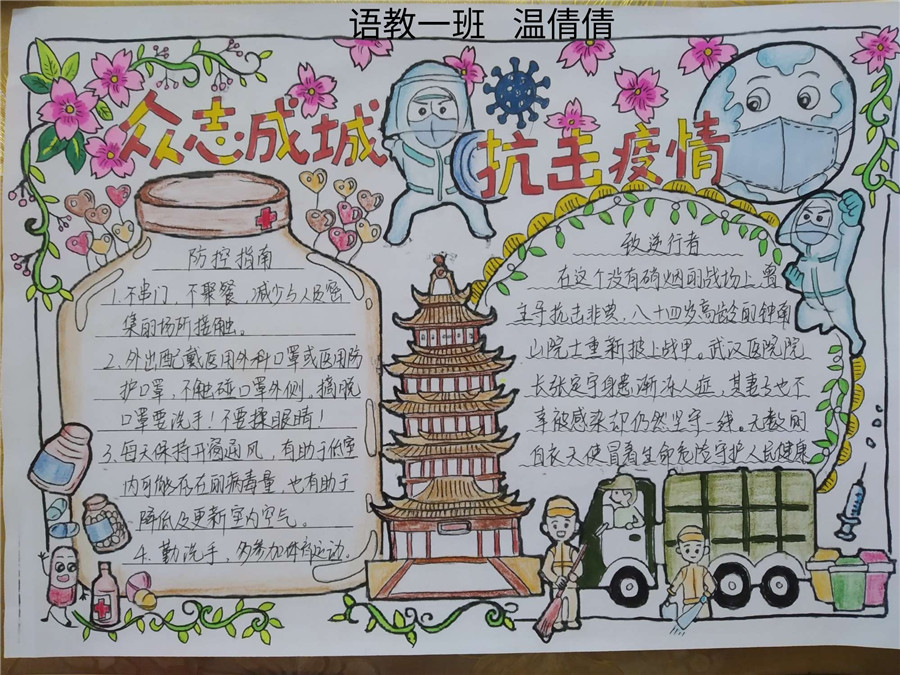 语教一班 温倩倩
众志成城
抗击疫情
防控指南
1.不串门,不聚餐,减少与人员密
集的场所接触。
2.外出配戴医用外科口罩或医用防
护口罩,不触碰口罩外侧,摘脱
口罩要洗手!不要揉眼睛!
3.每天保持开窗通风,有助于低室
内可能存在的病毒量,也有助于
降低及更新室内空气。
4.勤洗手,多参加体育运动。
致逆行者
在这个没有硝烟的战场上,曾
主导抗击非典,八十四岁高龄的钟南
山院士重新披上战甲。武汉医院院
长张定宇身患渐冻人症,其妻子也不
幸被感染却仍然坚守一线。无数的
白衣天使冒着生命危险守护人民健康